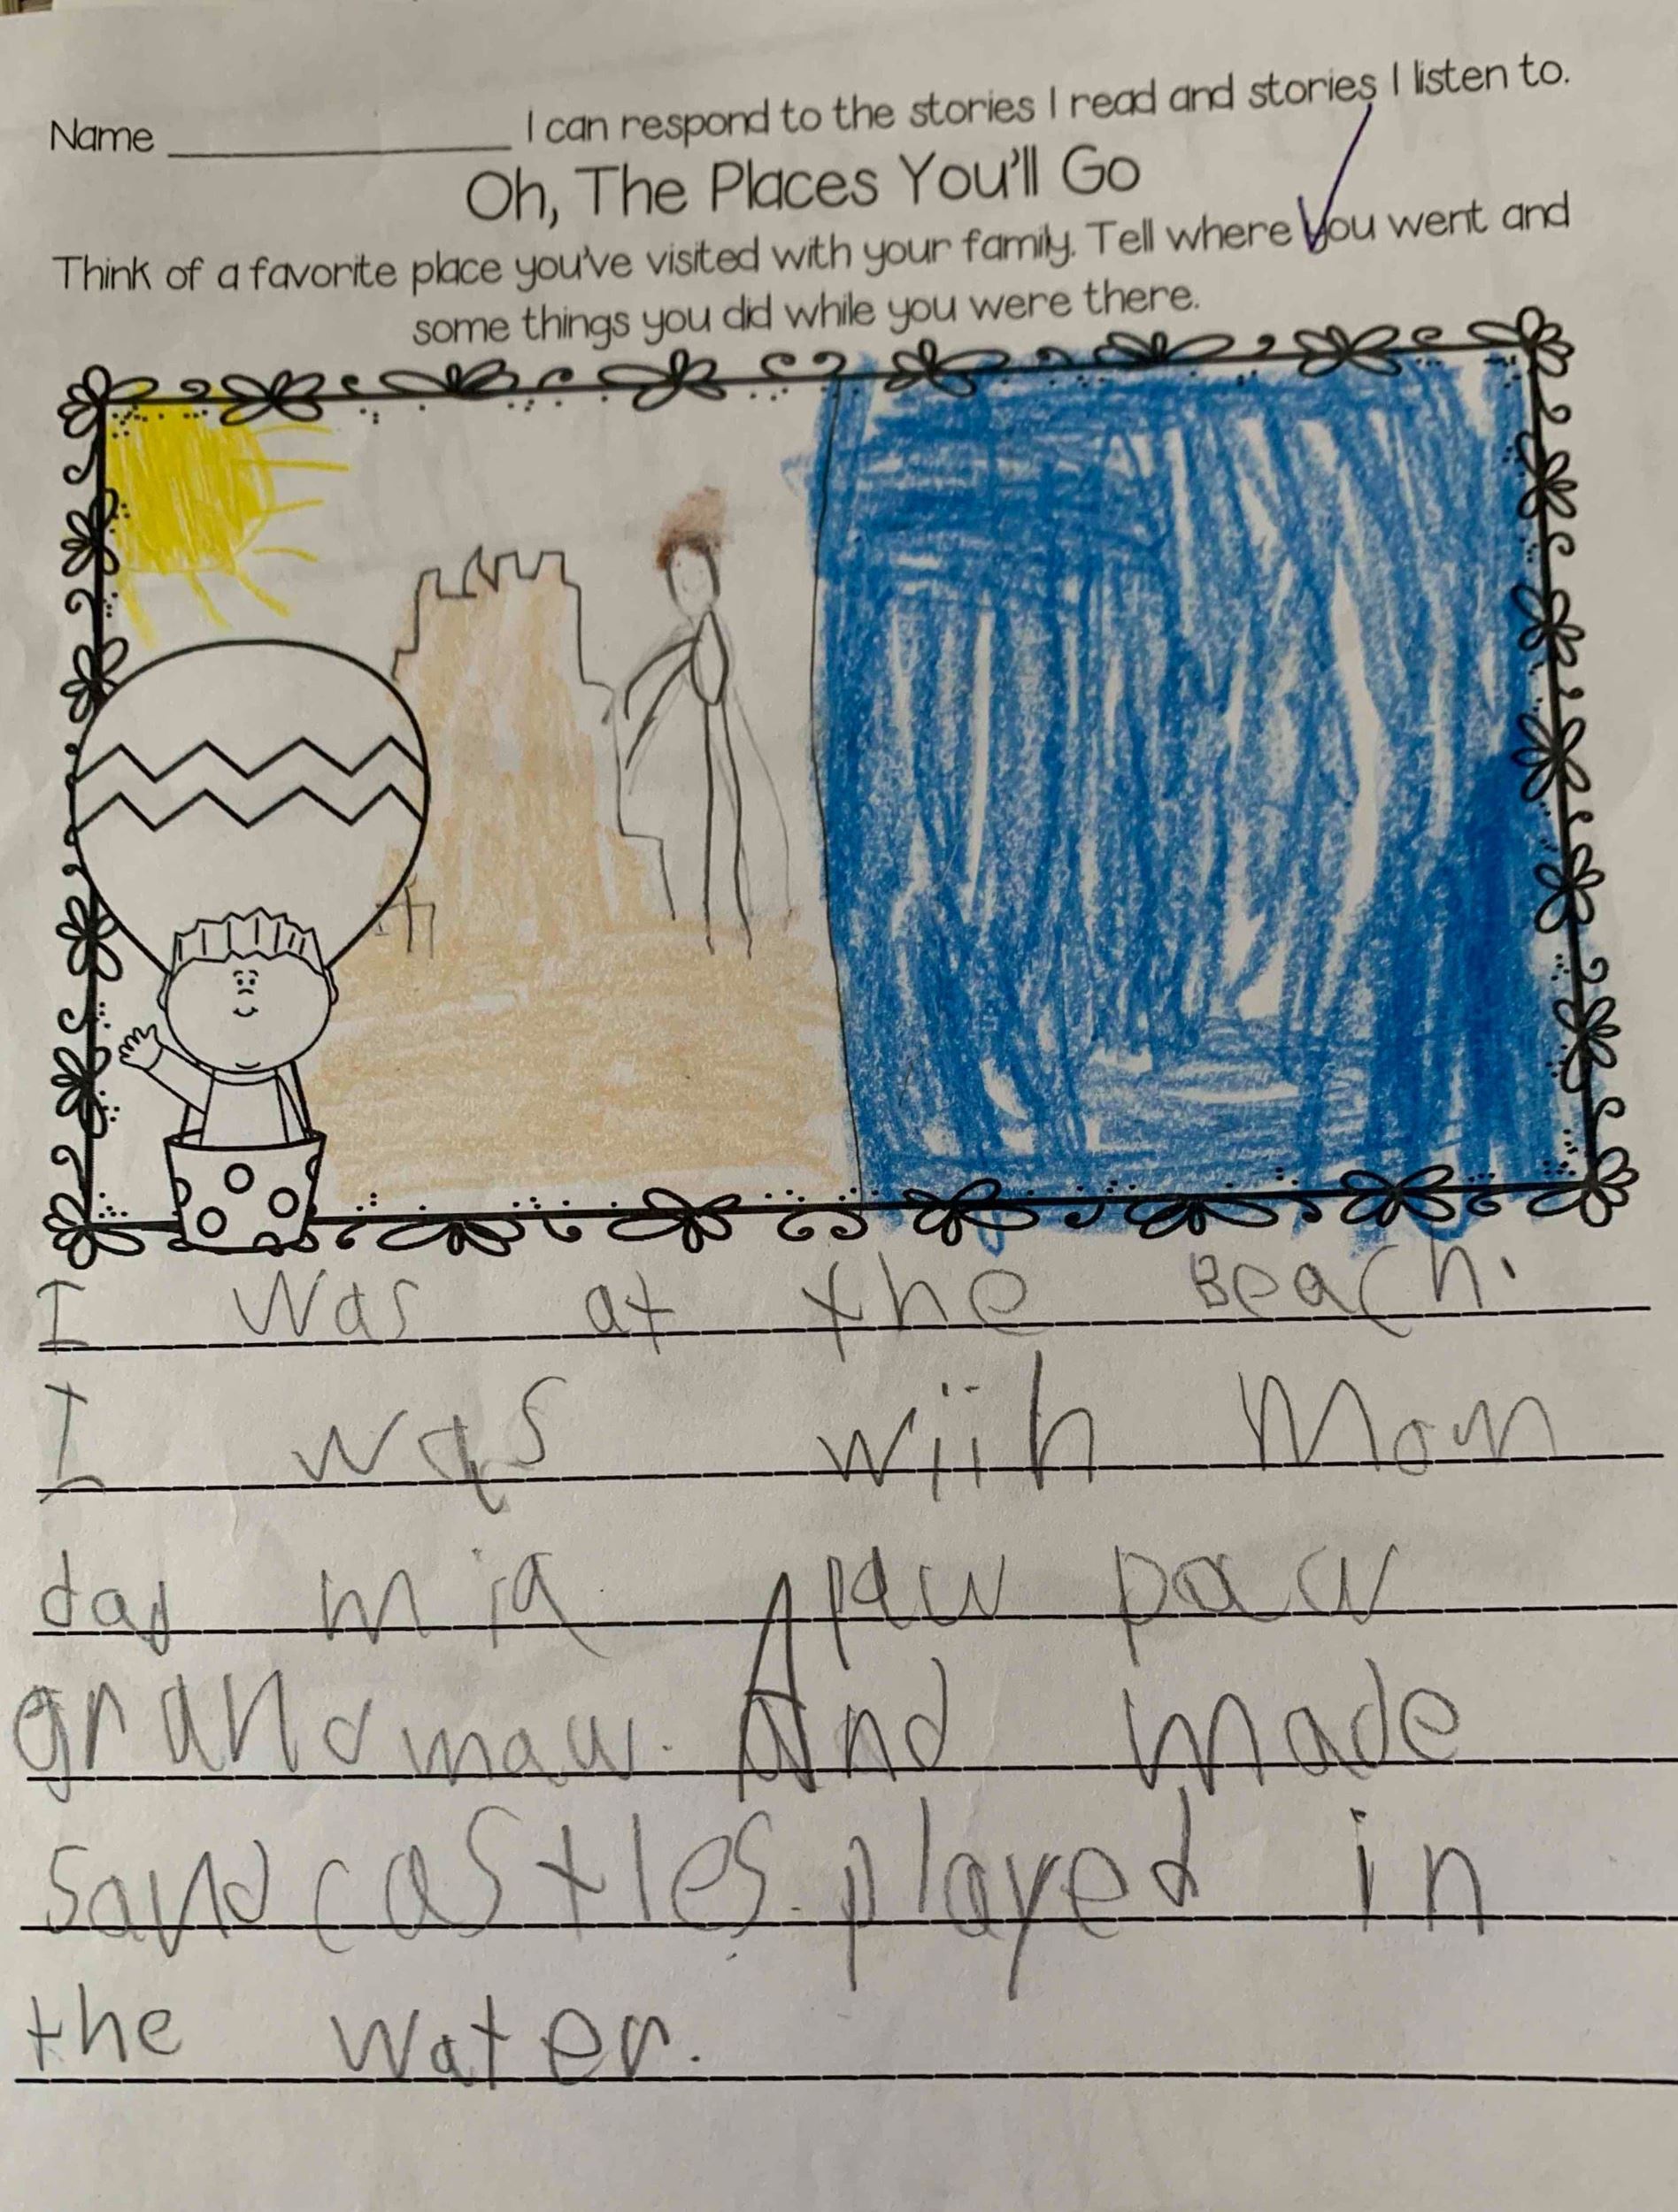 Name ____________ I can respond to the stories I read and stories I listen to.
Oh, The Places You'll Go
Think of a favorite place you've visited with your family. Tell where you went and
some things you did while you were there.
I was at the Beach.
I was wiih Mom
dad mia paw paw
grandmaw. And made
sandcastles. played in
the water.